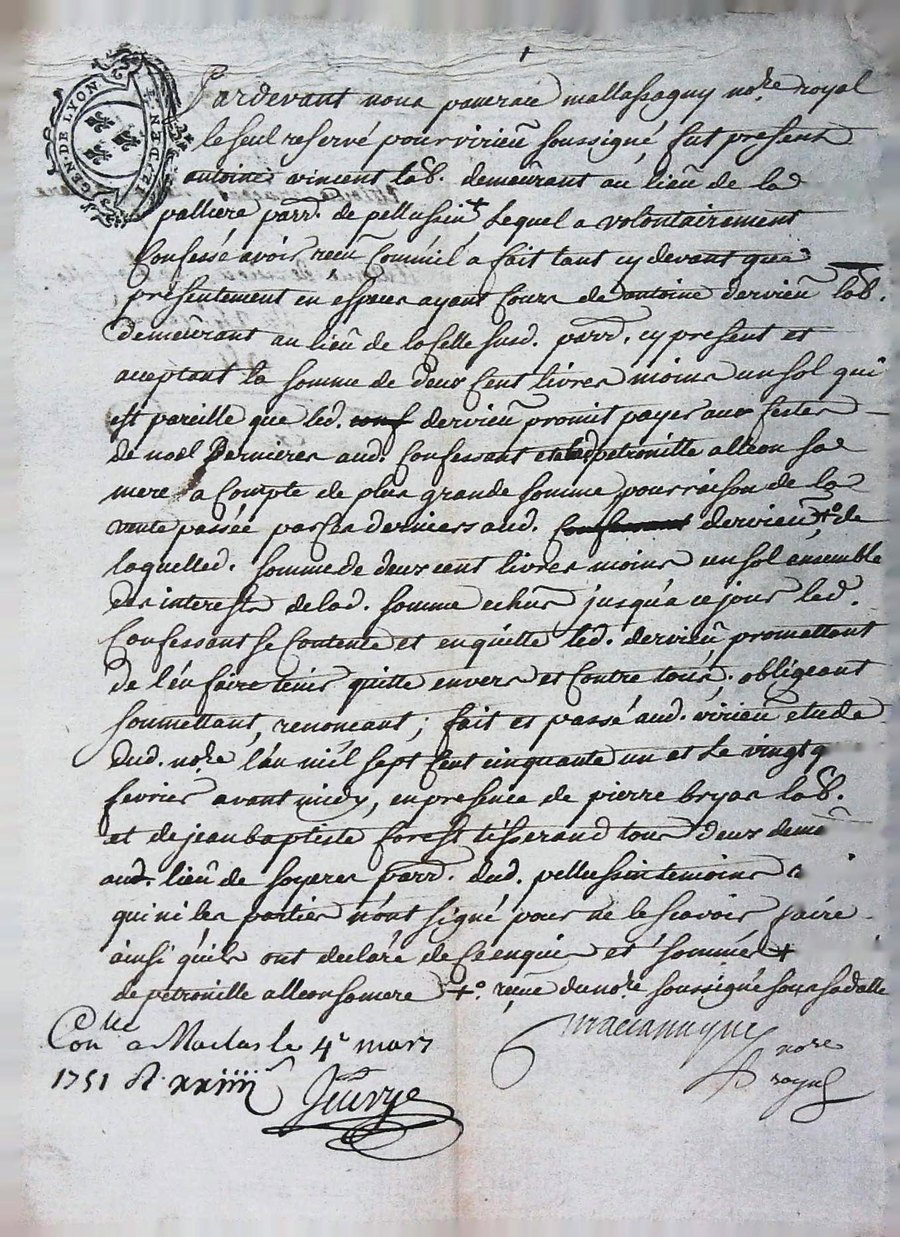 GEN. DE LYON
Pardevant nous pancrace mallassagny no.re royal
le seul reservé pour virieu soussigné, fut present
antoine vincent lab. demeurant au lieu de la
valliere parr. de pellussin + Lequel a volontairement
Confessé avoir receu Comme il a fait tant cy devant qua
présentement en especes ayant Cours de antoine dervieu lab.
demeurant au lieu de la Celle susd. parr. cy present et
acceptant la somme de deux Cent livres moins un sol qui
est pareille que led. dervieu promit payer aux festes
de noel Dernieres aud. Confessant et petronille alleon sa
mere a Compte de plus grande somme pour raison de la
vente passée par ces derniers aud. Confessant dervieu +o de
laquelled. somme de deux cent livres moins un sol ensemble
des interests de lad. somme echus jusqua ce jour led.
Confessant se Contente et en quitte led. dervieu, promettant
de l'en faire tenir quitte envers et Contre tous. obligeant
soumettant, renoncant; fait et passé aud. virieu etude
dud. no.re l'an mil sept Cent cinquante un et Le vingt q
fevrier avant midy, en presence de pierre bryas lab.
et de jean baptiste forest tisserand tous deux deme
aud. lieu de soyeres parr. dud. pellussin temoins
qui ni les parties n'ont signé pour ne le scavoir faire
ainsi qu'ils ont declaré de ce enquis et sommés +
de petronille alleon sa mere +o. receue du no.re soussigné sous sa datte
Con.lle a Maclas le 4e mars
1751 R xxiiii
no.re
royal